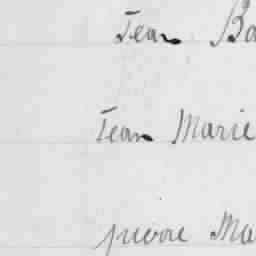 Jean Ba
Jean Marie
pierre Ma